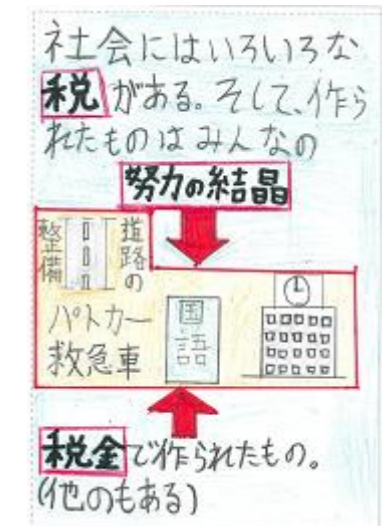 社会にはいろいろな
税がある。そして、作ら
れたものはみんなの
努力の結晶
道路の
整備
パトカー
救急車
国語
税金で作られたもの。
(他のもある)